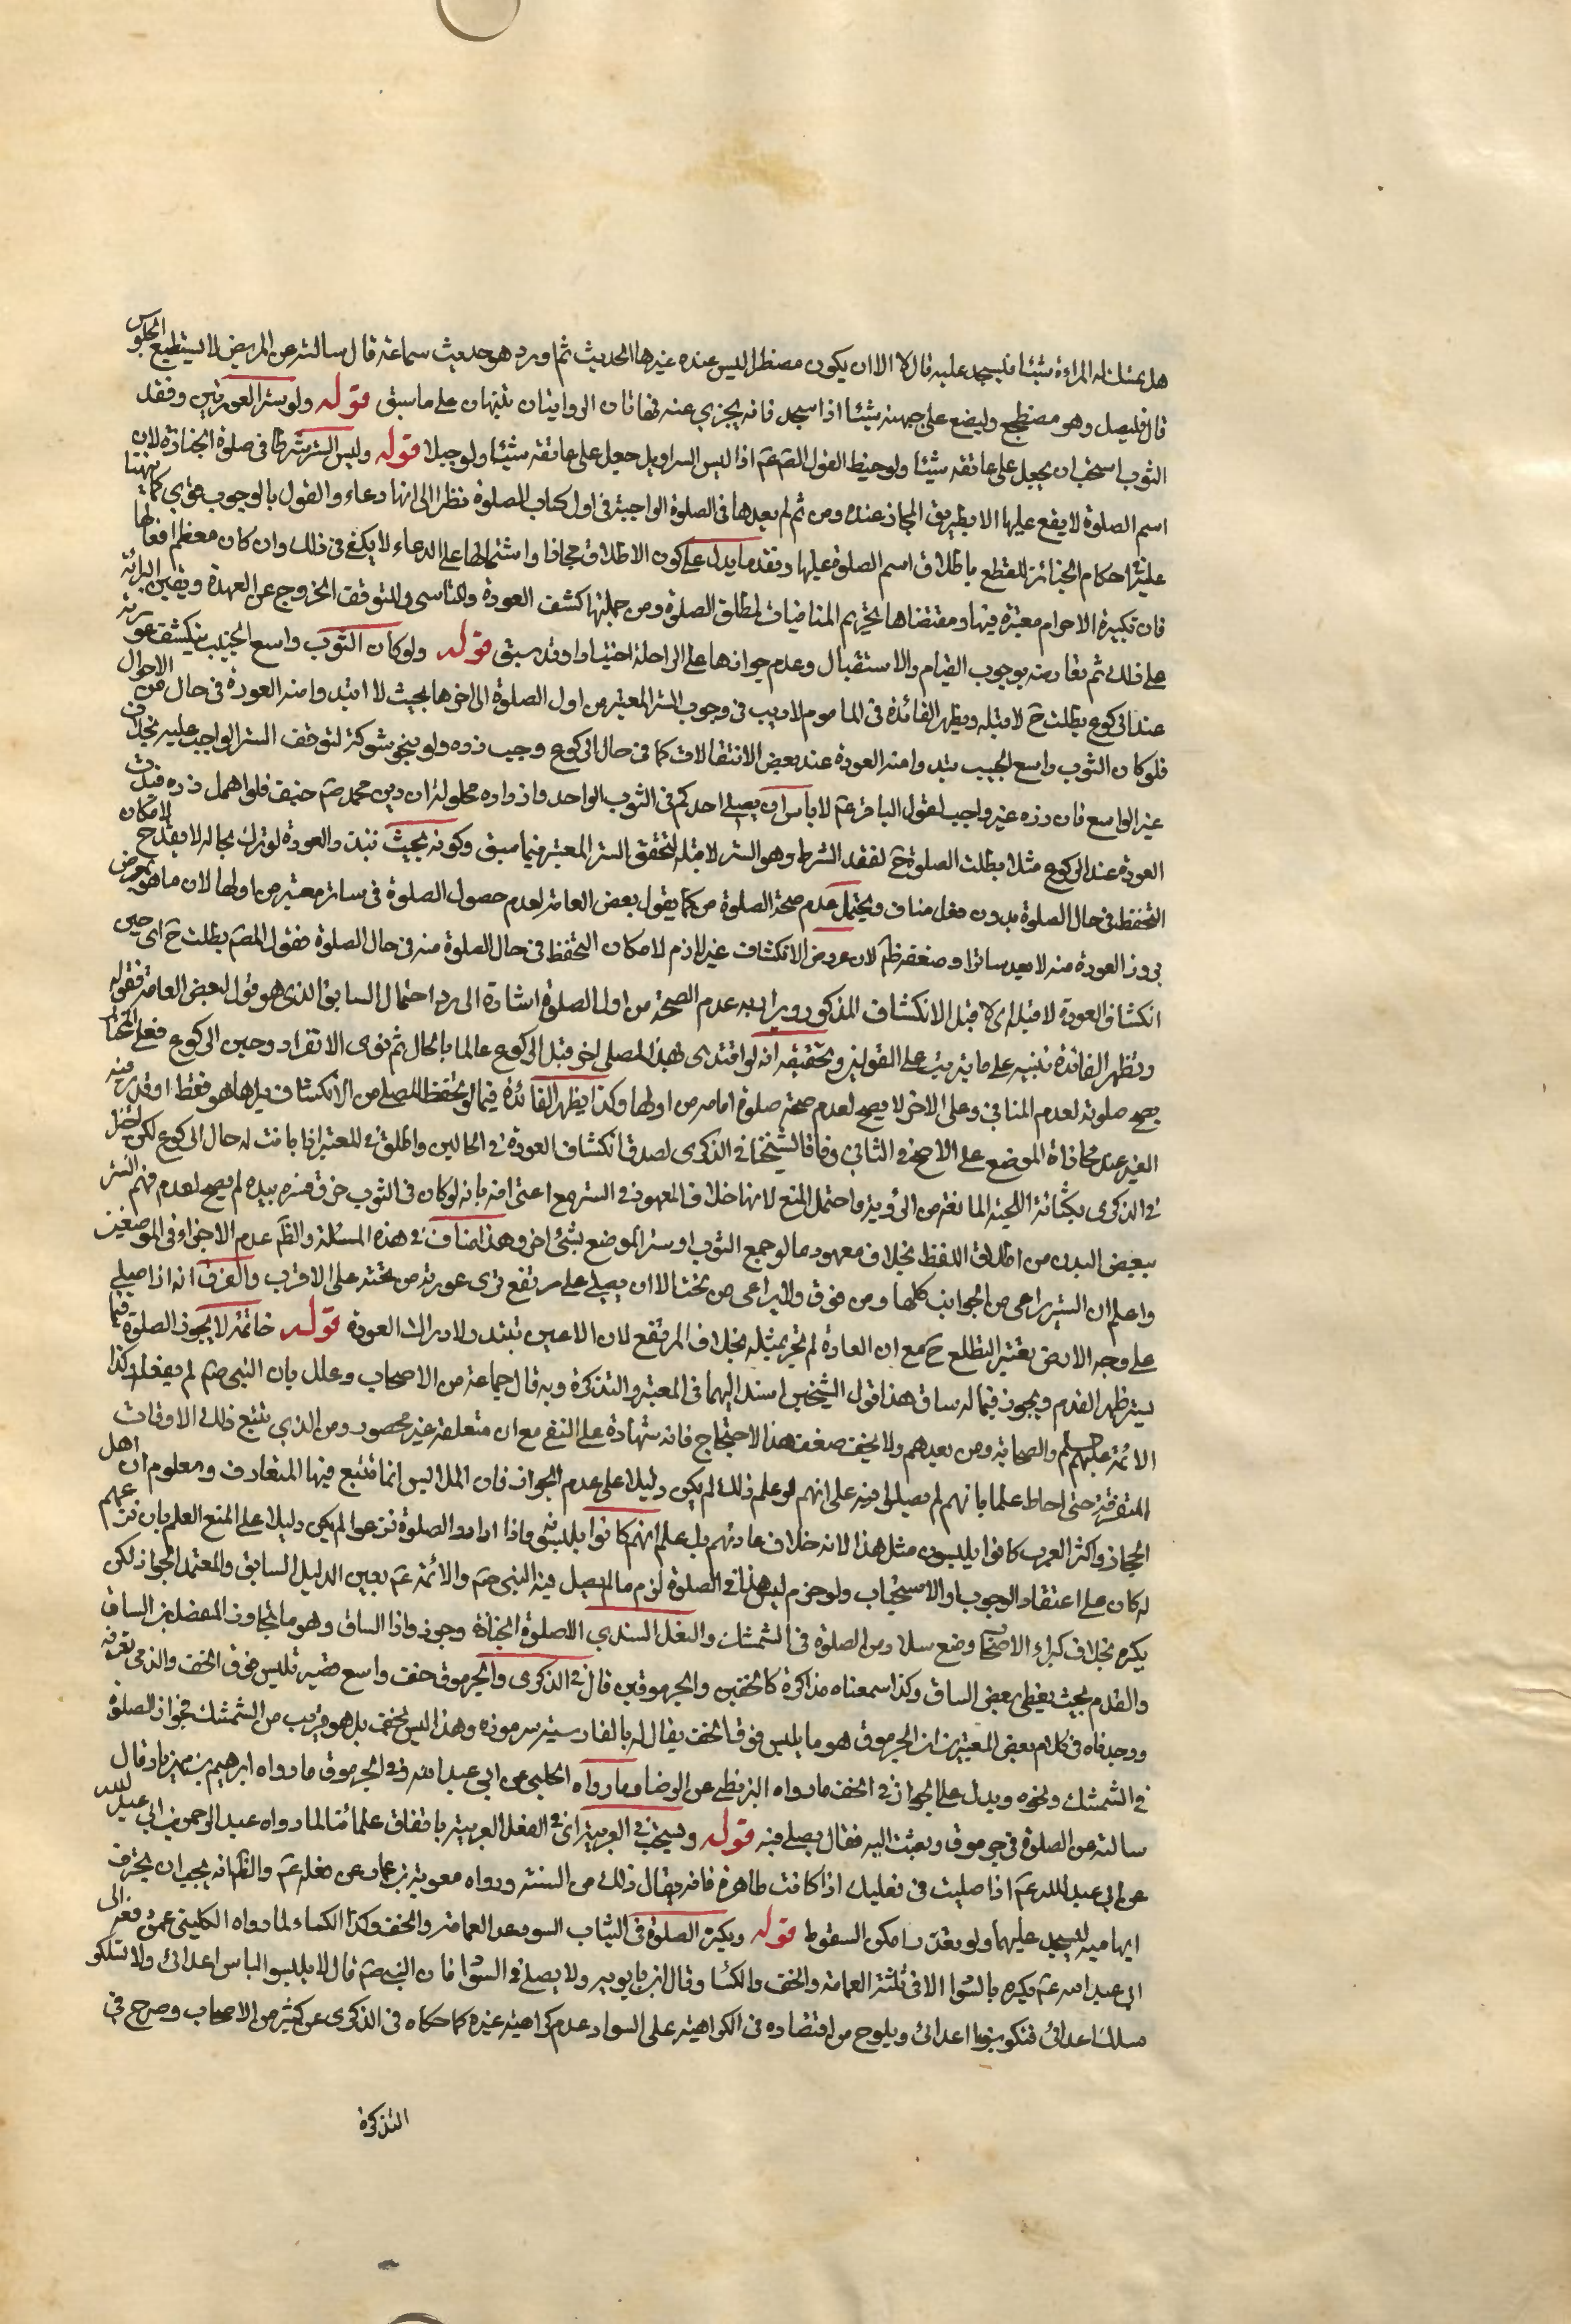 هل تمسك له المراءة شيئا فيسجد عليه قال لا الا ان يكون مضطرا ليس عنده غيرها الحديث ثم اورد هو حديث سماعة قال سالته عن المريض لا يستطيع الجلوس
قال فليصل وهو مضطجع وليضع على جبهته شيئا اذا سجد فانه يجزي عنه فهاتان الروايتان تنبهان على ما سبق قوله ولو ستر العورتين وفقد
الثوب استحب ان يجعل على عاتقه شيئا ولو خيط القول الص عم اذا لبس السراويل جعل على عاتقه شيئا ولو حبلا قوله وليس الستر شرطا في صلوة الجنازة لان
اسم الصلوة لا يقع عليها الا بطريق المجاز عنده ومن ثم لم يعدها في الصلوة الواجبة في اول كتاب الصلوة نظرا الى انها دعاء والقول بالوجوب قوي كما نبهنا
عليه احكام الجنائز للقطع باطلاق اسم الصلوة عليها وفقد ما يدل على كون الاطلاق مجازا واشتمالها على الدعاء لا يكفي في ذلك وان كان معظم افعالها
فان تكبيرة الاحرام معتبرة فيها ومقتضاها تحريم المنافيات لمطلق الصلوة ومن جملتها كشف العورة والتاسى ولتوقف الخروج عن العهدة ويقين البرائة
على ذلك ثم نعارضه بوجوب القيام والاستقبال وعدم جوازها على الراحلة اختيارا وقد سبق قوله ولو كان الثوب واسع الجيب ينكشف عورته
عند الركوع بطلت ح لا قبله ويظهر الفائدة في الماموم لا ريب في وجوب الستر المعتبر من اول الصلوة الى اخرها بحيث لا تبدوا منه العورة في حال من الاحوال
فلو كان الثوب واسع الجيب تبدوا منه العورة عند بعض الانتقالات كما في حال الركوع وجب زره ولو بنحو شوكة لتوقف الستر الواجب عليه بخلاف
غير الواسع فان زره غير واجب لقول الباقر عم لا باس ان يصلى احدكم في الثوب الواحد وازراره محلولة ان دين محمد صم حنيف فلو اهمل زره فبدت
العورة عند الركوع مثلا بطلت الصلوة ح لفقد الشرط وهو الستر لا قبله لتحقق الستر المعتبر فيما سبق وكونه بحيث تبدو العورة لو ترك بحاله لا يقدح لامكان
التحفظ في حال الصلوة بدون فعل مناف ويحتمل عدم صحة الصلوة من كما يقول بعض العامة لعدم حصول الصلوة في ساتر معتبر من اولها لان ما هو بمعرض
بروز العورة منه لا يعد ساترا وضعفه ظم لان عروض الانكشاف غير لازم لامكان التحفظ في حال الصلوة منه في حال الصلوة فقول المصم بطلت ح اى حين
انكشاف العورة لا قبله اى لا قبل الانكشاف المذكور ويراد به عدم الصحة من اول الصلوة اشارة الى رد احتمال السابق الذى هو قول لبعض العامة فقوله
وتظهر الفائدة تنبيه على ما يترتب على القولين وتحقيقه انه لو اقتدى بهذا المصلى اخر قبل الركوع عالما بالحال ثم نوى الانفراد وحين الركوع فعلى المختار
يصح صلوته لعدم المنافي وعلى الاخر لا يصح لعدم صحة صلوة امامه من اولها وكذا يظهر الفائدة فيما لو تحفظ المصلى من الانكشاف
الغير عند محاذاة الموضع على الاصح في الثاني وفاقا لشيخنا في الذكرى لصدق انكشاف العورة في الحالين واطلق في المعتبر اذا بانت له حال الركوع لكن
في الذكرى بكثافة اللحية المانعة من الرؤية واحتمل المنع لانها خلاف المعهود في الستر مع اعترافه بانه لو كان في الثوب خرق فستره بيده لم يصح لعدم فهم الستر
ببعض البدن من اطلاق اللفظ بخلاف معهود ما لو جمع الثوب او ستر الموضع بشئ اخر وهذا مناف في هذه المسئلة والظم عدم الاجزاء في الموضعين
واعلم ان الستر يراعى من الجوانب كلها ومن فوق ولا يراعى من تحت الا ان يصلى على مرتفع ترى عورته من تحته على الاقرب والفرق انه اذا صلى
على وجه الارض يعتبر التطلع ح مع ان العادة لم تجر بمثله بخلاف المرتفع لان الاعين تبتدر لادراك العورة قوله خاتمة لا يجوز الصلوة فيما
يستر ظهر القدم ويجوز فيما له ساق هذا قول الشيخين اسند اليهما في المعتبر والتذكرة وبه قال جماعة من الاصحاب وعلل بان النبي صم لم يفعله وكذا
الائمة عليهم السلم والصحابة ومن بعدهم ولا يخفى ضعف هذا الاحتجاج فانه شهادة على النفى مع ان متعلقه غير محصور ومن الذي تتبع ذلك الاوقات
المتفرقة حتى احاط علما بانهم لم يصلوا فيه على انهم لو علم ذلك لم يكن دليلا على عدم الجواز فان الملابس انما تتبع فيها المتعارف ومعلوم ان اهل
الحجاز واكثر العرب كانوا يلبسون مثل هذا لانه خلاف عادتهم بل علم انهم كانوا يلبسونه واذا ارادوا الصلوة نزعوا لم يكن دليلا على المنع العلم بان نزعهم
له كان على اعتقاد الوجوب او الاستحباب ولو حرم لبس هذا في الصلوة لزم ما لم يصل فيه النبي صم والائمة عم بعين الدليل السابق والمعتمد الجواز لكن
يكره بخلاف كبراء الاصحاب وضع سلار من الصلوة في الشمشك والنعل السندي الا صلوة الجنازة وجوز واذا الساق وهو ما تجاوز المفصل بين الساق
والقدم بحيث يغطى بعض الساق وكذا سمعناه مذاكرة كالخفين والجرموقين قال في الذكرى والجرموق خف واسع قصير تلبس فوق الخف والذى نعرفه
ووجدناه في كلام بعض المعتبرين ان الجرموق هو ما يلبس فوق الخف يقال له بالفارسية سرموزه وهذا ليس بخف بل هو قريب من الشمشك فجواز الصلوة
في الشمشك ونحوه ويدل على الجواز في الخف ما رواه البزنطى عن الرضا وما رواه الحلبى عن ابي عبد الله وفي الجرموق ما رواه ابرهيم بن مهزيار قال
سالته عن الصلوة في جرموق وبعثت اليه فقال يصلى فيه قوله ويستحب في العربية اى في النعل العربية باتفاق علمائنا لما رواه عبد الرحمن بن ابي عبد الله
عن ابى عبد الله عم اذا صليت في نعليك اذا كانت طاهرة فانه يقال ذلك من السنة ورواه معوية بن عمار عن فعله عم والظم انه يجب ان يحترف
ابهاميه ليسجد عليهما ولو بغتن سامكن السقوط قوله ويكره الصلوة في الثياب السود عدا العمامة والخف وكذا الكساء لما رواه الكلينى عمن رفعه الى
ابي عبد الله عم يكره بالسوا الا في ثلثة العمامة والخف والكسا وقال ابن بابويه ولا يصلى في السوا فان النبي صم قال لا يلبسوا لباس اعدائ ولا تسلكو
مسلك اعدائ فتكونوا اعدائ ويلوح من اقتصاره في الكراهية على السواد عدم كراهية غيره كما حكاه في الذكرى عن كثير من الاصحاب وصرح في
التذكرة